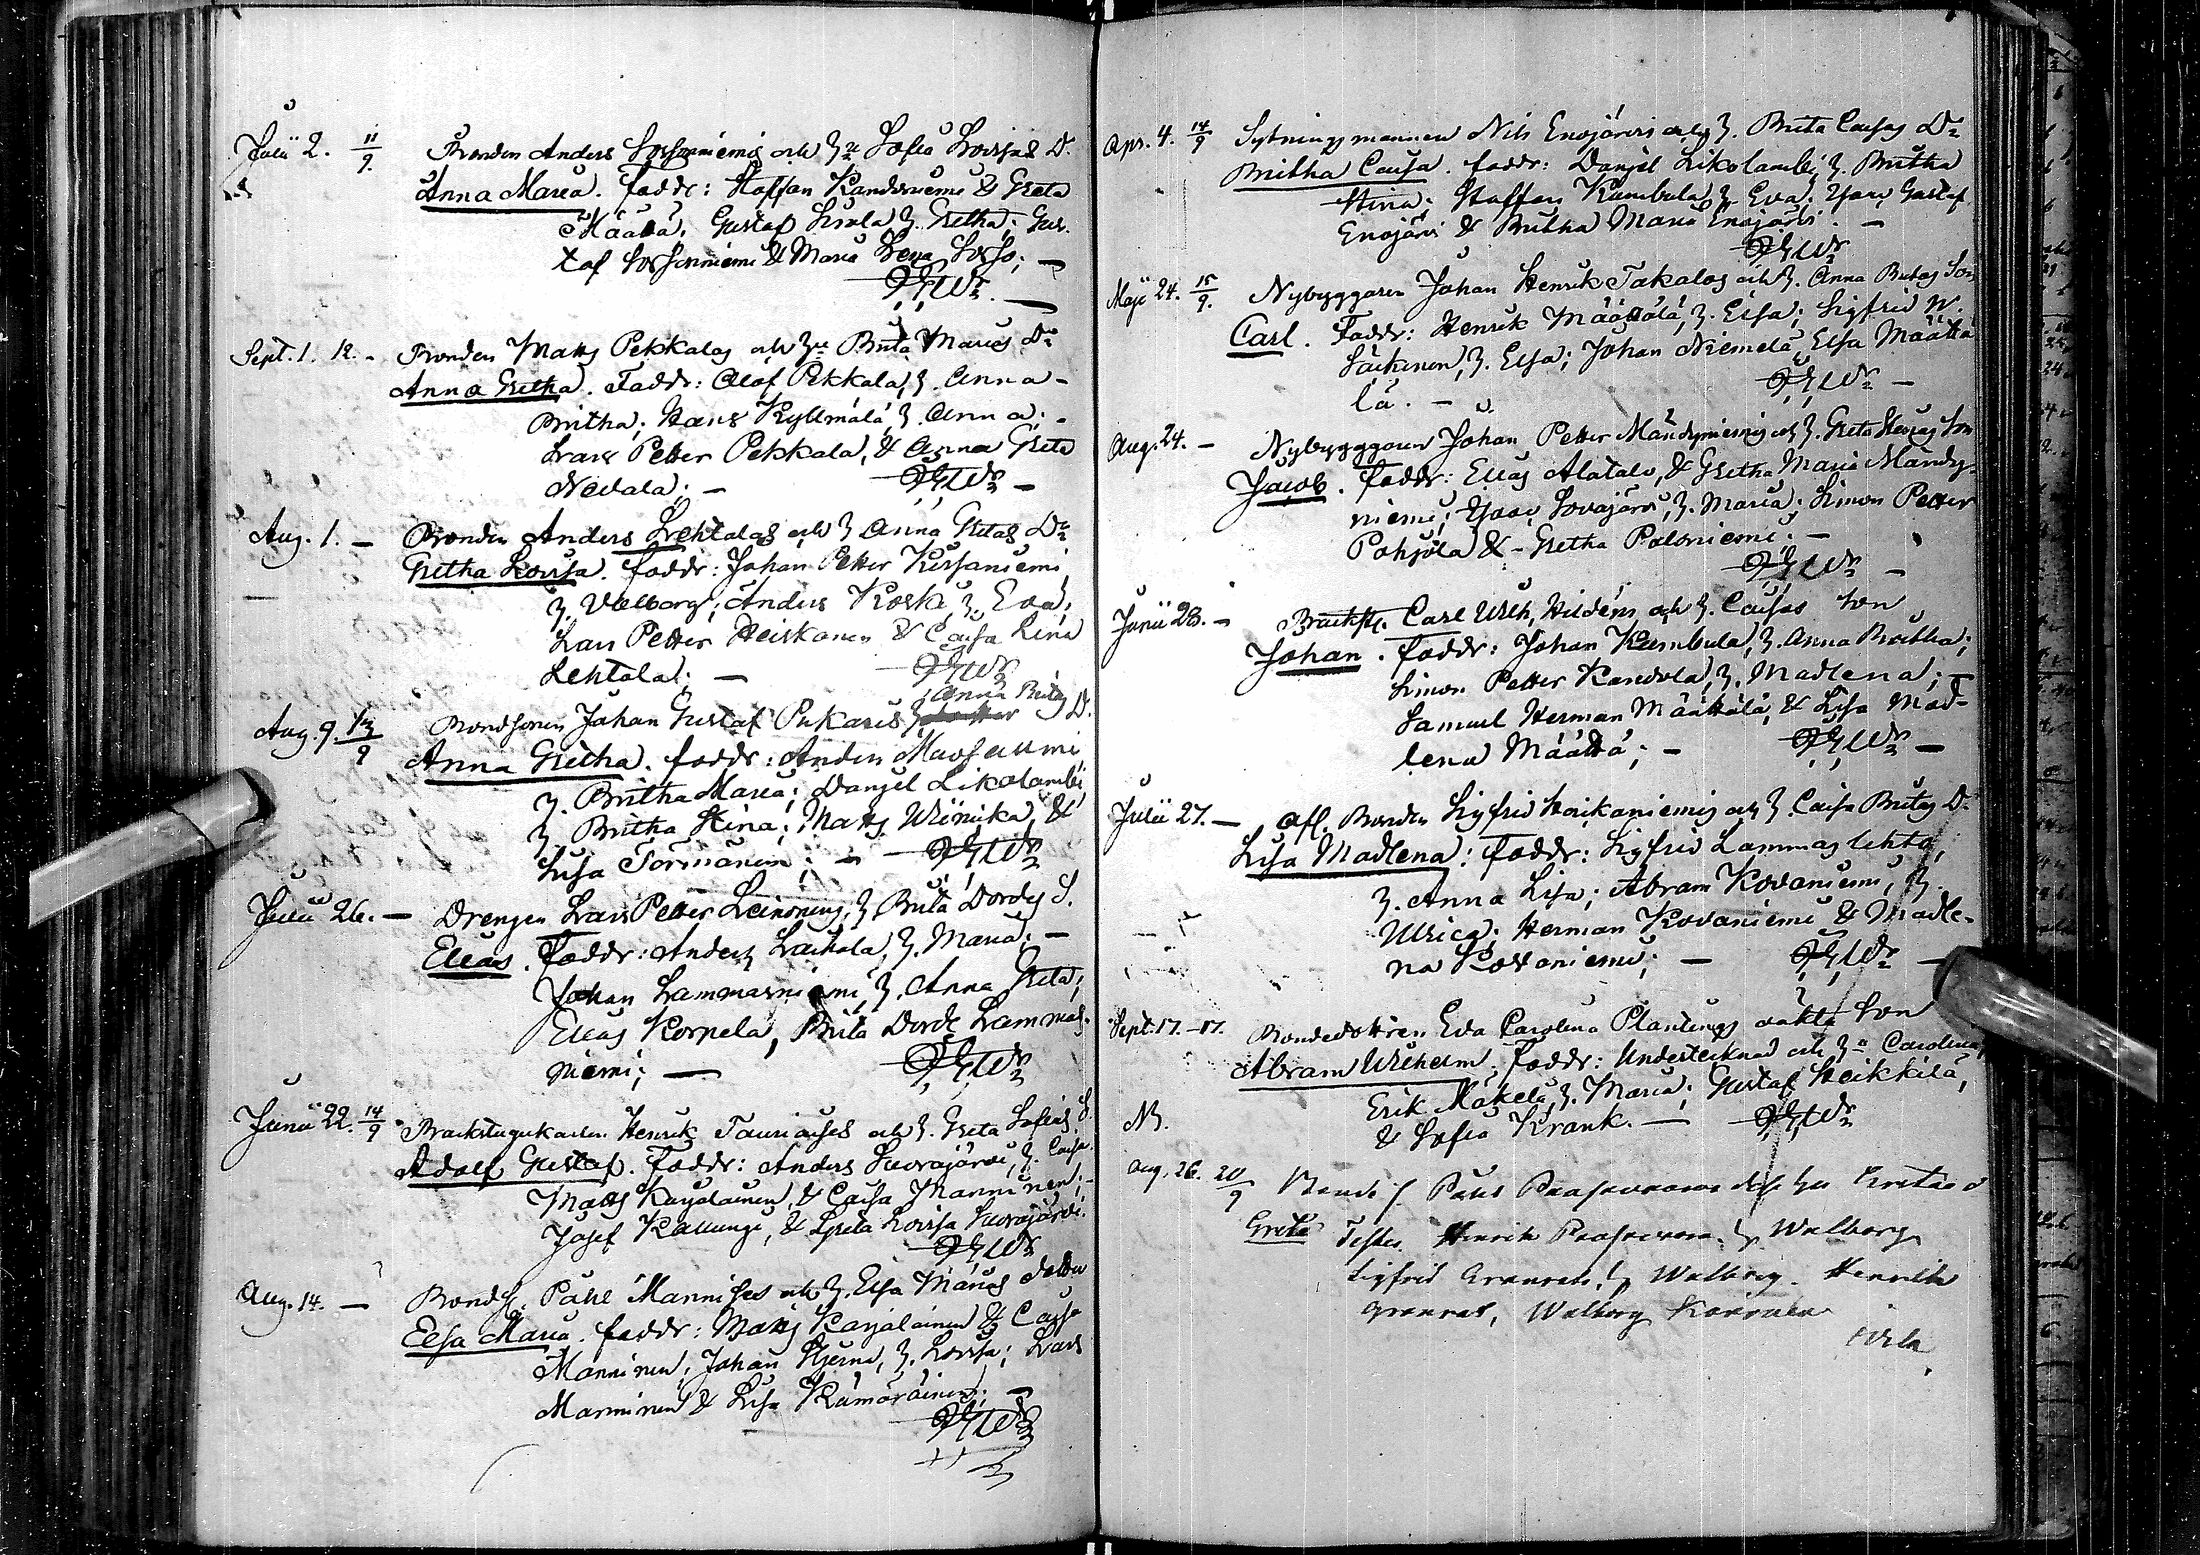 Julii 2. 11/9. Bonden Anders Sorsaniemis och H:u Sofia Lovisas D.
Anna Maria. Faddr: Staffan Kandoniemi & Greta
Määttä; Gustaf Sirola, H. Gretha; Gus-
taf Sorsaniemi & Maria Lena Sorsa; —
Sept. 1. 12. - Bonden Matts Pekkalas och H:u Brita Marias D:r
Anna Gretha. Faddr: Olof Pekkala, H. Anna -
Britha; Hans Kyllmälä, H. Anna; -
Lars Petter Pekkala, & Anna Greta
Nivala; —
Aug. 1. — Bonden Anders Lehtalas och H Anna Gretas D:r
Gretha Lovisa. Faddr: Johan Petter Kursaniemi,
H. Valborg; Anders Koski, H. Eva;
Lars Petter Heiskanen & Caisa Lina
Lehtala; —
Anna Britas D.
Aug. 9. 13/9 Bondsonen Johan Gustaf Pukaris H.
Anna Gretha. Faddr: Anders
H. Britha Maria; Danjel Likolambi,
H. Britha Stina; Matts &
Lisa Törmänen; —
Julii 26. — Drengen Lars Petter Leinonens, H. Brita Dordes S.
Elias. Faddr: Anders Laihola, H. Maria; —
Johan Lammasniemi, H. Anna Greta;
Elias Korpela, Brita Dorde Lammas-
niemi; —
Junii 22. 14/9 Backstugukarlen Henrik Tauriaises och H. Greta Sofias S.
Adolf Gustaf. Faddr: Anders Suorajärvi, H. Caisa.
Matts Karjalainen, & Caisa Manninen; -
Josef Kallungi, & Greta Lovisa Suorajärvi.
Aug. 14. — Bonds. Påhl Mannises och H. Elsa Marias dotter
Elsa Maria. Faddr: Matts Karjalainen & Caisa
Manninen; Johan Stjerna, H. Lovisa; Lars
Manninen & Lisa Kämäräinen; —
Apr. 4. 14/9 Sytningsmannen Nils Enojärvis och H. Brita Caisas D:r
Britha Caisa. Faddr: Danjel Likolambi, H. Britha
Stina; Staffan Kumbula, H. Eva; Isaac Gustaf
Enojärvi & Britha Maria Enojärvi. —
Maji 24. 15/9. Nybyggaren Johan Henrik Takalas och H. Anna Britas Son
Carl. Faddr: Henrik Määttälä, H. Elsa; Sigfrid W.
Säikinen, H. Elsa; Johan Niemelä, Elsa Määttä-
lä. —
Aug. 24. — Nybyggaren Johan Petter Mändyniemis och H. Greta Son
Jacob. Faddr: Elias Alatalo, & Gretha Maria Mändy-
niemi; Isaac Sovajärvi, H. Maria; Simon Petter
Pohjola & - Gretha Paloniemi. —
Junii 28. — Carl Wilh. Hildéns och H. Caisas Son
Johan. Faddr: Johan Kumbula, H. Anna Britha;
Simon Petter Kandola, H. Madlena; —
Samuel Herman Määttälä, & Lisa Mad-
lena Määttä; —
Julii 27. — Afl. Bonden Sigfrid Koikaniemis och H. Caisa Britas D.
Lisa Madlena: Faddr: Sigfrid Lammaslehto,
H. Anna Lisa; Abram Kovaniemi, H.
Ulrica; Herman Kovaniemi & Madle-
na Kovaniemi; —
Sept. 17. — 17. Bondedottren Eva Carolina Plantings oäkta Son
Abram Wilhelm. Faddr: Undertecknad och H:u Carolina;
Erik Mäkelä, H. Maria; Gustaf Heikkilä,
& Sofia Krank. —
NB.
Aug. 26. 20/9 Gretas d
Greta Testes Henrik H. Walborg
Sigfrid Granrot, H. Walborg. Henrik
Granrot, Walborg